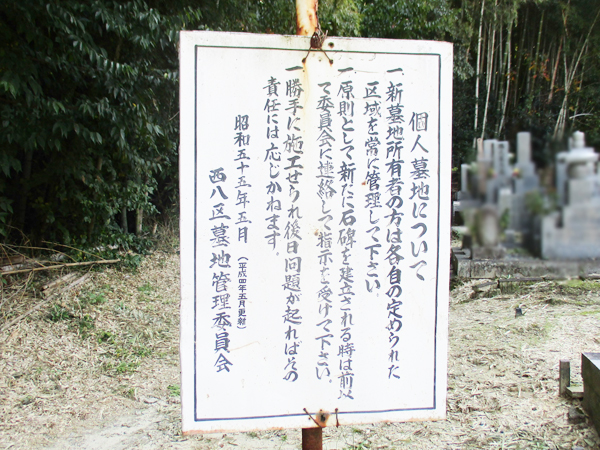 個人墓地について
一、新墓地所有者の方は各自の定められた
区域を常に管理して下さい。
一、原則として新たに石碑を建立される時は前以
て委員会に連絡して指示を受けて下さい。
一、勝手に施工せられ後日問題が起ればその
責任には応じかねます。
昭和五十五年五月
(平成四年五月更新)
西八区墓地管理委員会